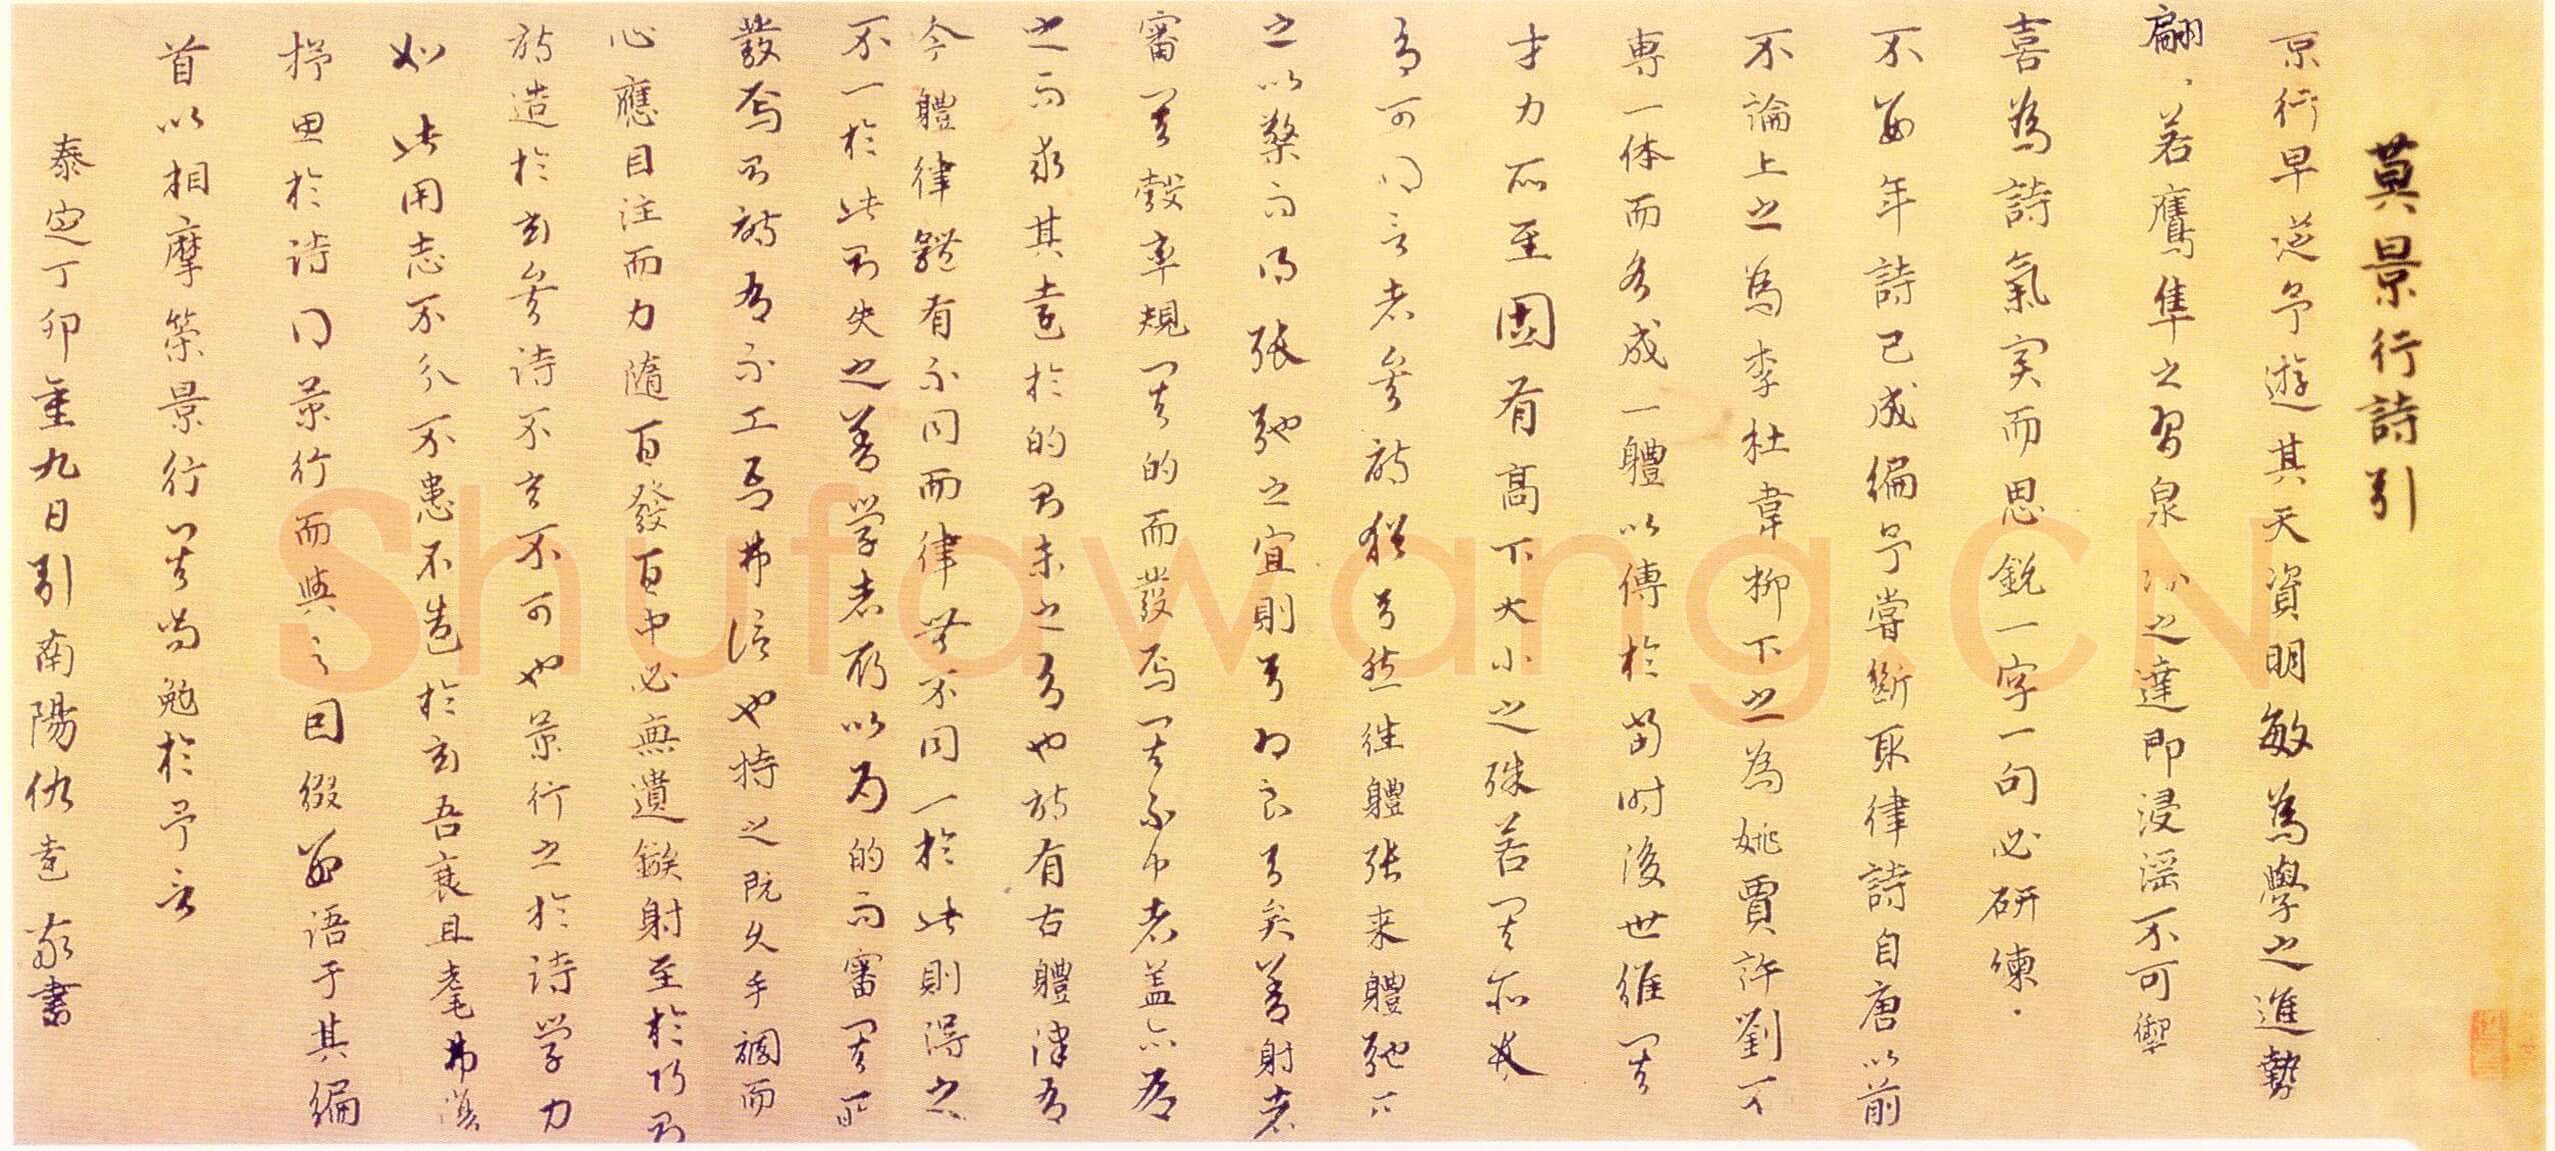 莫景行詩引
京行早從予遊其天資明敏為學之進勢
翩、若鷹隼之習泉汩之達即浸淫不可禦
喜為詩氣實而思銳一字一句必研煉
不數年詩已成編予嘗斷取律詩自唐以前
不論上之為李杜韋柳下之為姚賈許劉
專一体而各成一體以傳於當時後世維其
才力所至固有高下大小之殊若其
有可得言者矣詩猶弓然往體張来體弛
之以檠而得張弛之宜則弓之良弓矣善射者
審其彀率規其的而發焉其不中者蓋亦有
之而求其遠於的則未之有也詩有古體律有
今體律體有不同而律無不同一於此則得之
不一於此則失之善學者所以為的而審其
發焉則詩有不工焉弗信也持之既久手調而
心應目注而力隨百發百中必無遺鏃射至於
詩造於玄矣詩不玄不可也景行之於詩學力
如此用志不分不患不造於玄吾衰且耄弗復
抒思於詩得景行而與之因綴數語于其編
首以相摩䇿景行其尚勉於予言
泰定丁卯重九日引南陽仇遠 書
Shufawang.CN